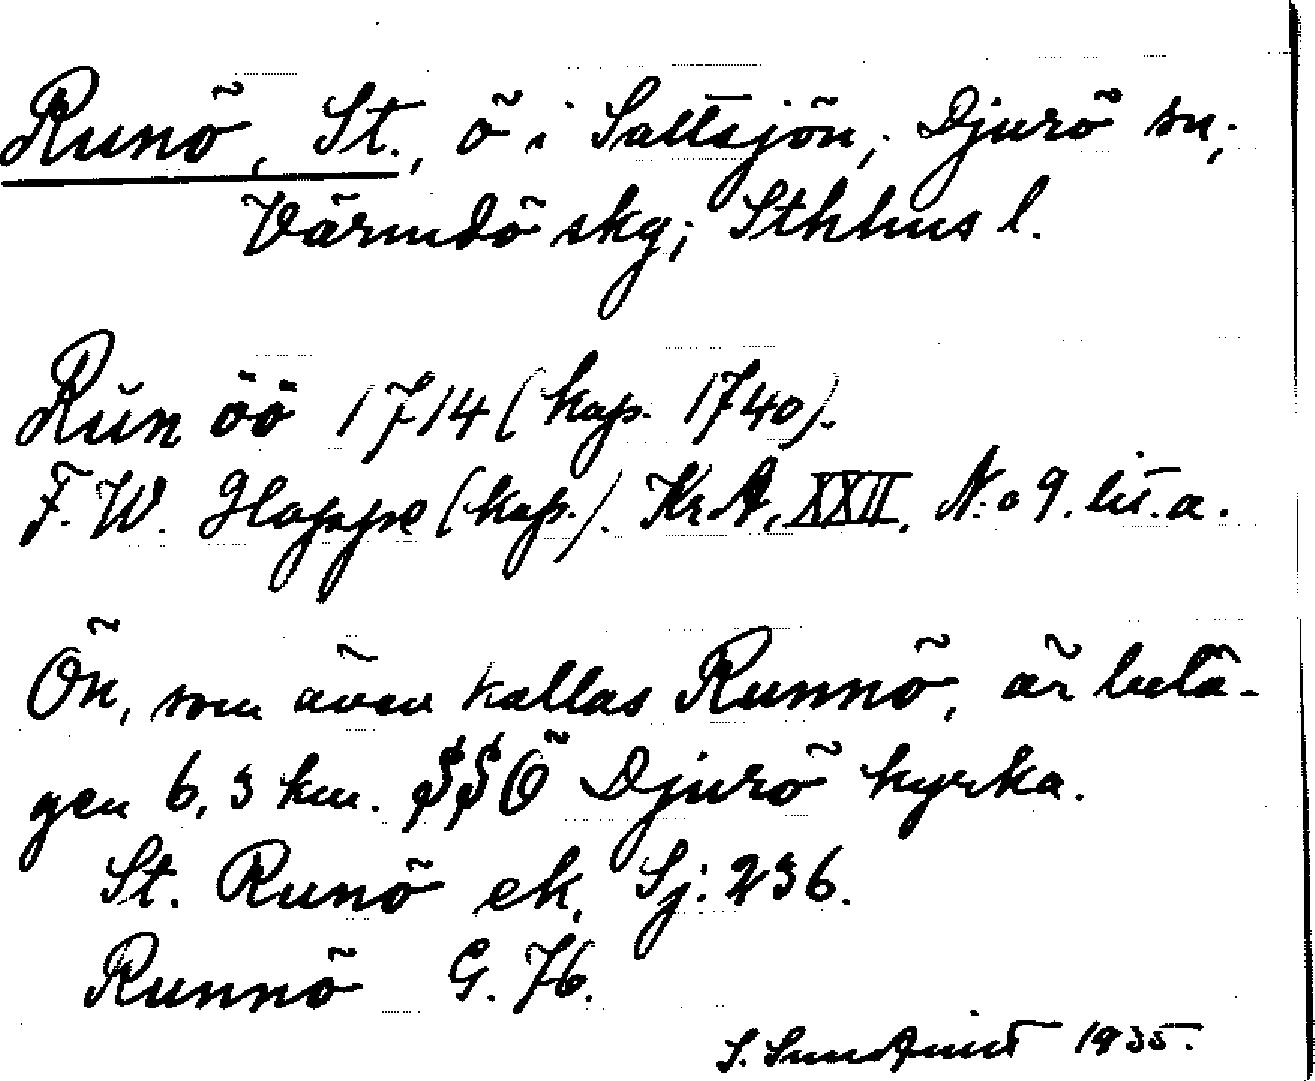 Runö, St., ö i Saltsjön; Djurö sn;
Värmdö skg; Sthlms l.
Run öö 1714 (kop. 1740).
F. W. Happe (kop.). KrA, XXII, N:o 9. lit. a.
Ön, som även kallas Runnö, är belä-
gen 6,3 km. SSÖ Djurö kyrka.
St. Runö ek. Sj: 236.
Runnö G. 76.
S. Sundquist 1935.